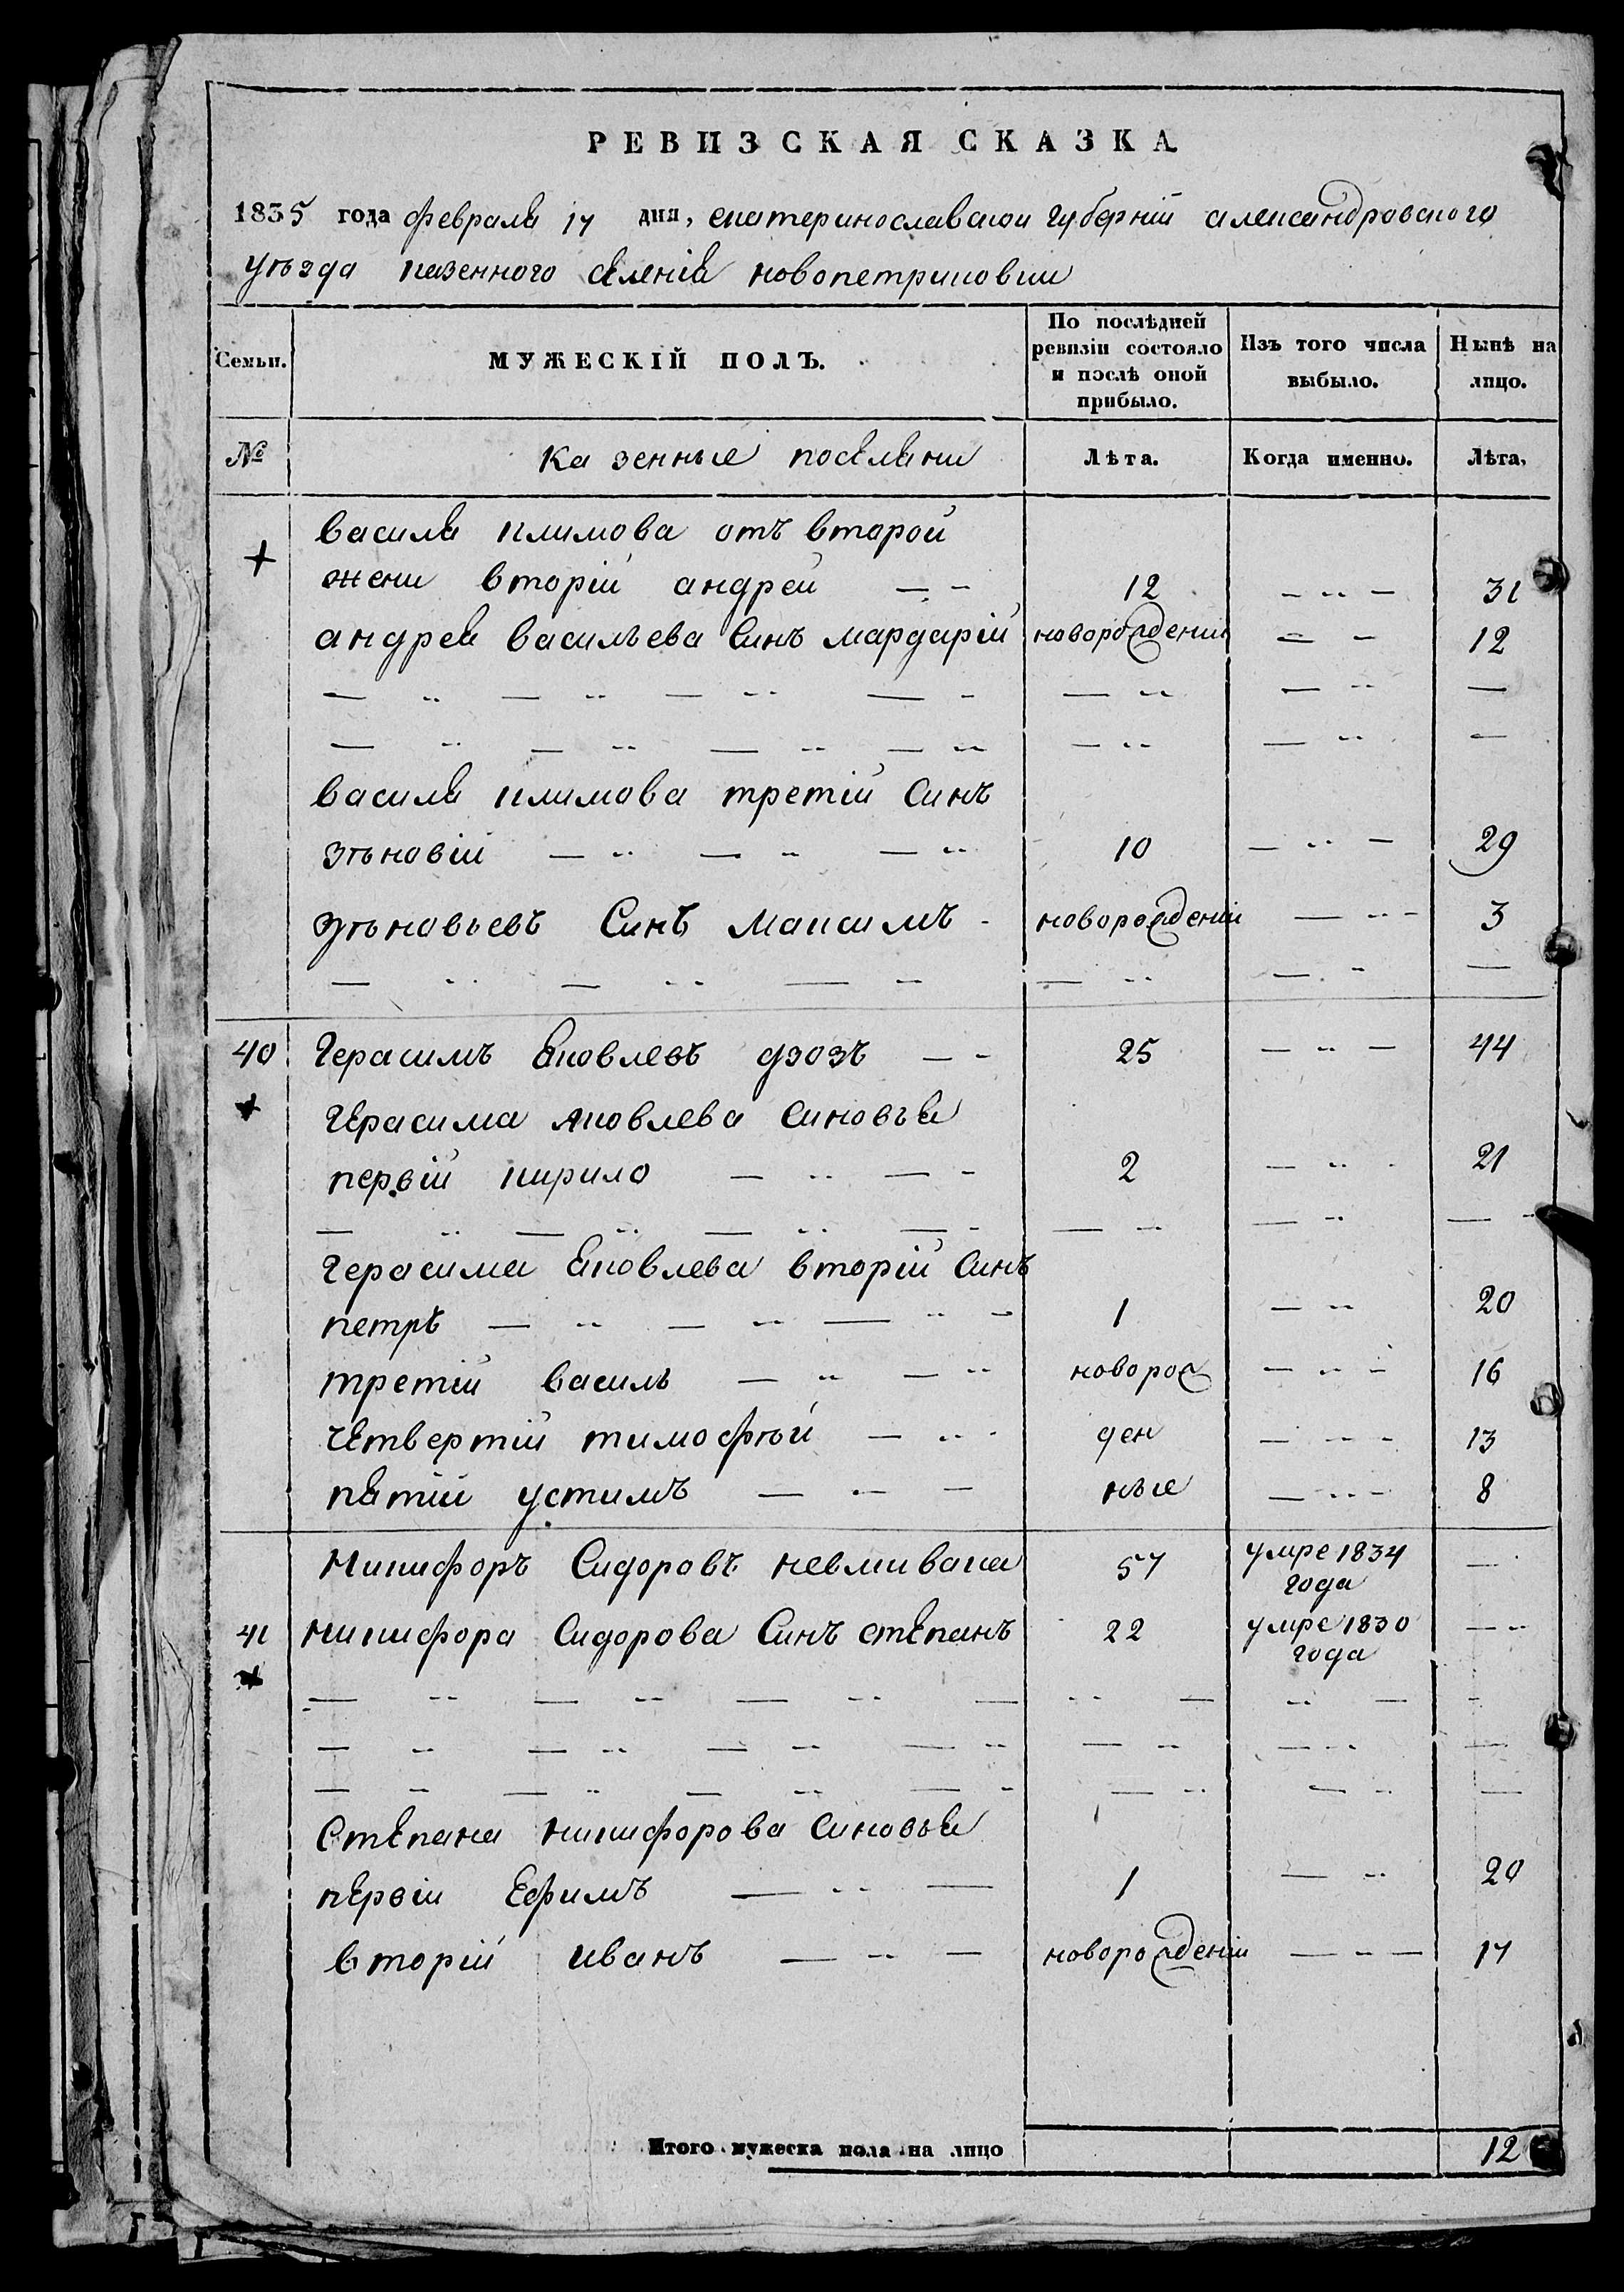 РЕВИЗСКАЯ СКАЗКА
1835 года февраля 17 дня, екатеринославской губерніи александровского
уѣзда казенного селенія новопетриковки
Семьи. МУЖЕСКІЙ ПОЛЪ. По послѣдней ревизіи состояло и послѣ оной прибыло. Изъ того числа выбыло. Нынѣ на лицо.
№ казенные поселяни Лѣта. Когда именно. Лѣта.
василя климова отъ второй
+ жени вторій андрей 12 31
андрея васильева синъ мардарій новорожденій 12
василя климова третій синъ
зѣновій 10 29
зѣновьевъ синъ максимъ новорожденій 3
40 Герасимъ яковлевъ дзозъ 25 44
Герасима яковлева синовъя
первій кирило 2 21
Герасима яковлева вторій синъ
петръ 1 20
третій василь новорож 16
четвертій тимофѣй ден 13
пятій устимъ ные 8
Никифоръ Сидоровъ невмивака 57 умре 1834 года
41 никифора Сидорова Синъ степанъ 22 умре 1830 года
Степана никифорова синовья
первій Ефимъ 1 20
вторій иванъ новорожденій 17
Итого мужеска пола на лицо 12